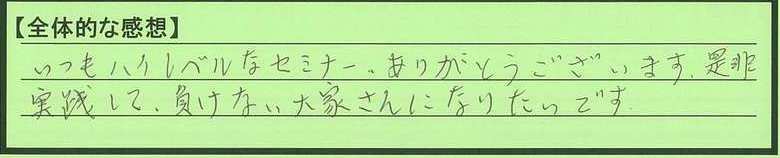 【全体的な感想】
いつもハイレベルなセミナー、ありがとうございます。是非
実践して、負けない大家さんになりたいです。